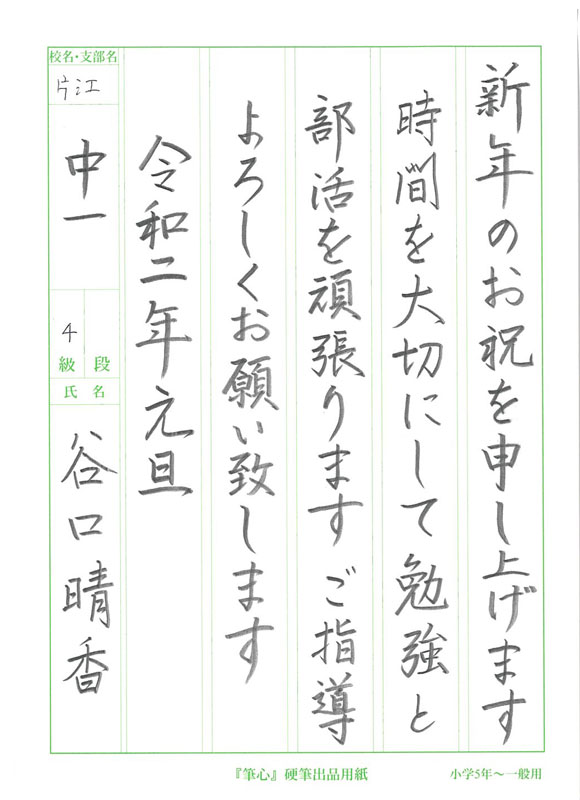 新年のお祝を申し上げます
時間を大切にして勉強と
部活を頑張ります ご指導
よろしくお願い致します
令和二年元旦
校名・支部名
片江
中一
4
級 段
氏名
谷口晴香
『筆心』硬筆出品用紙
小学5年〜一般用